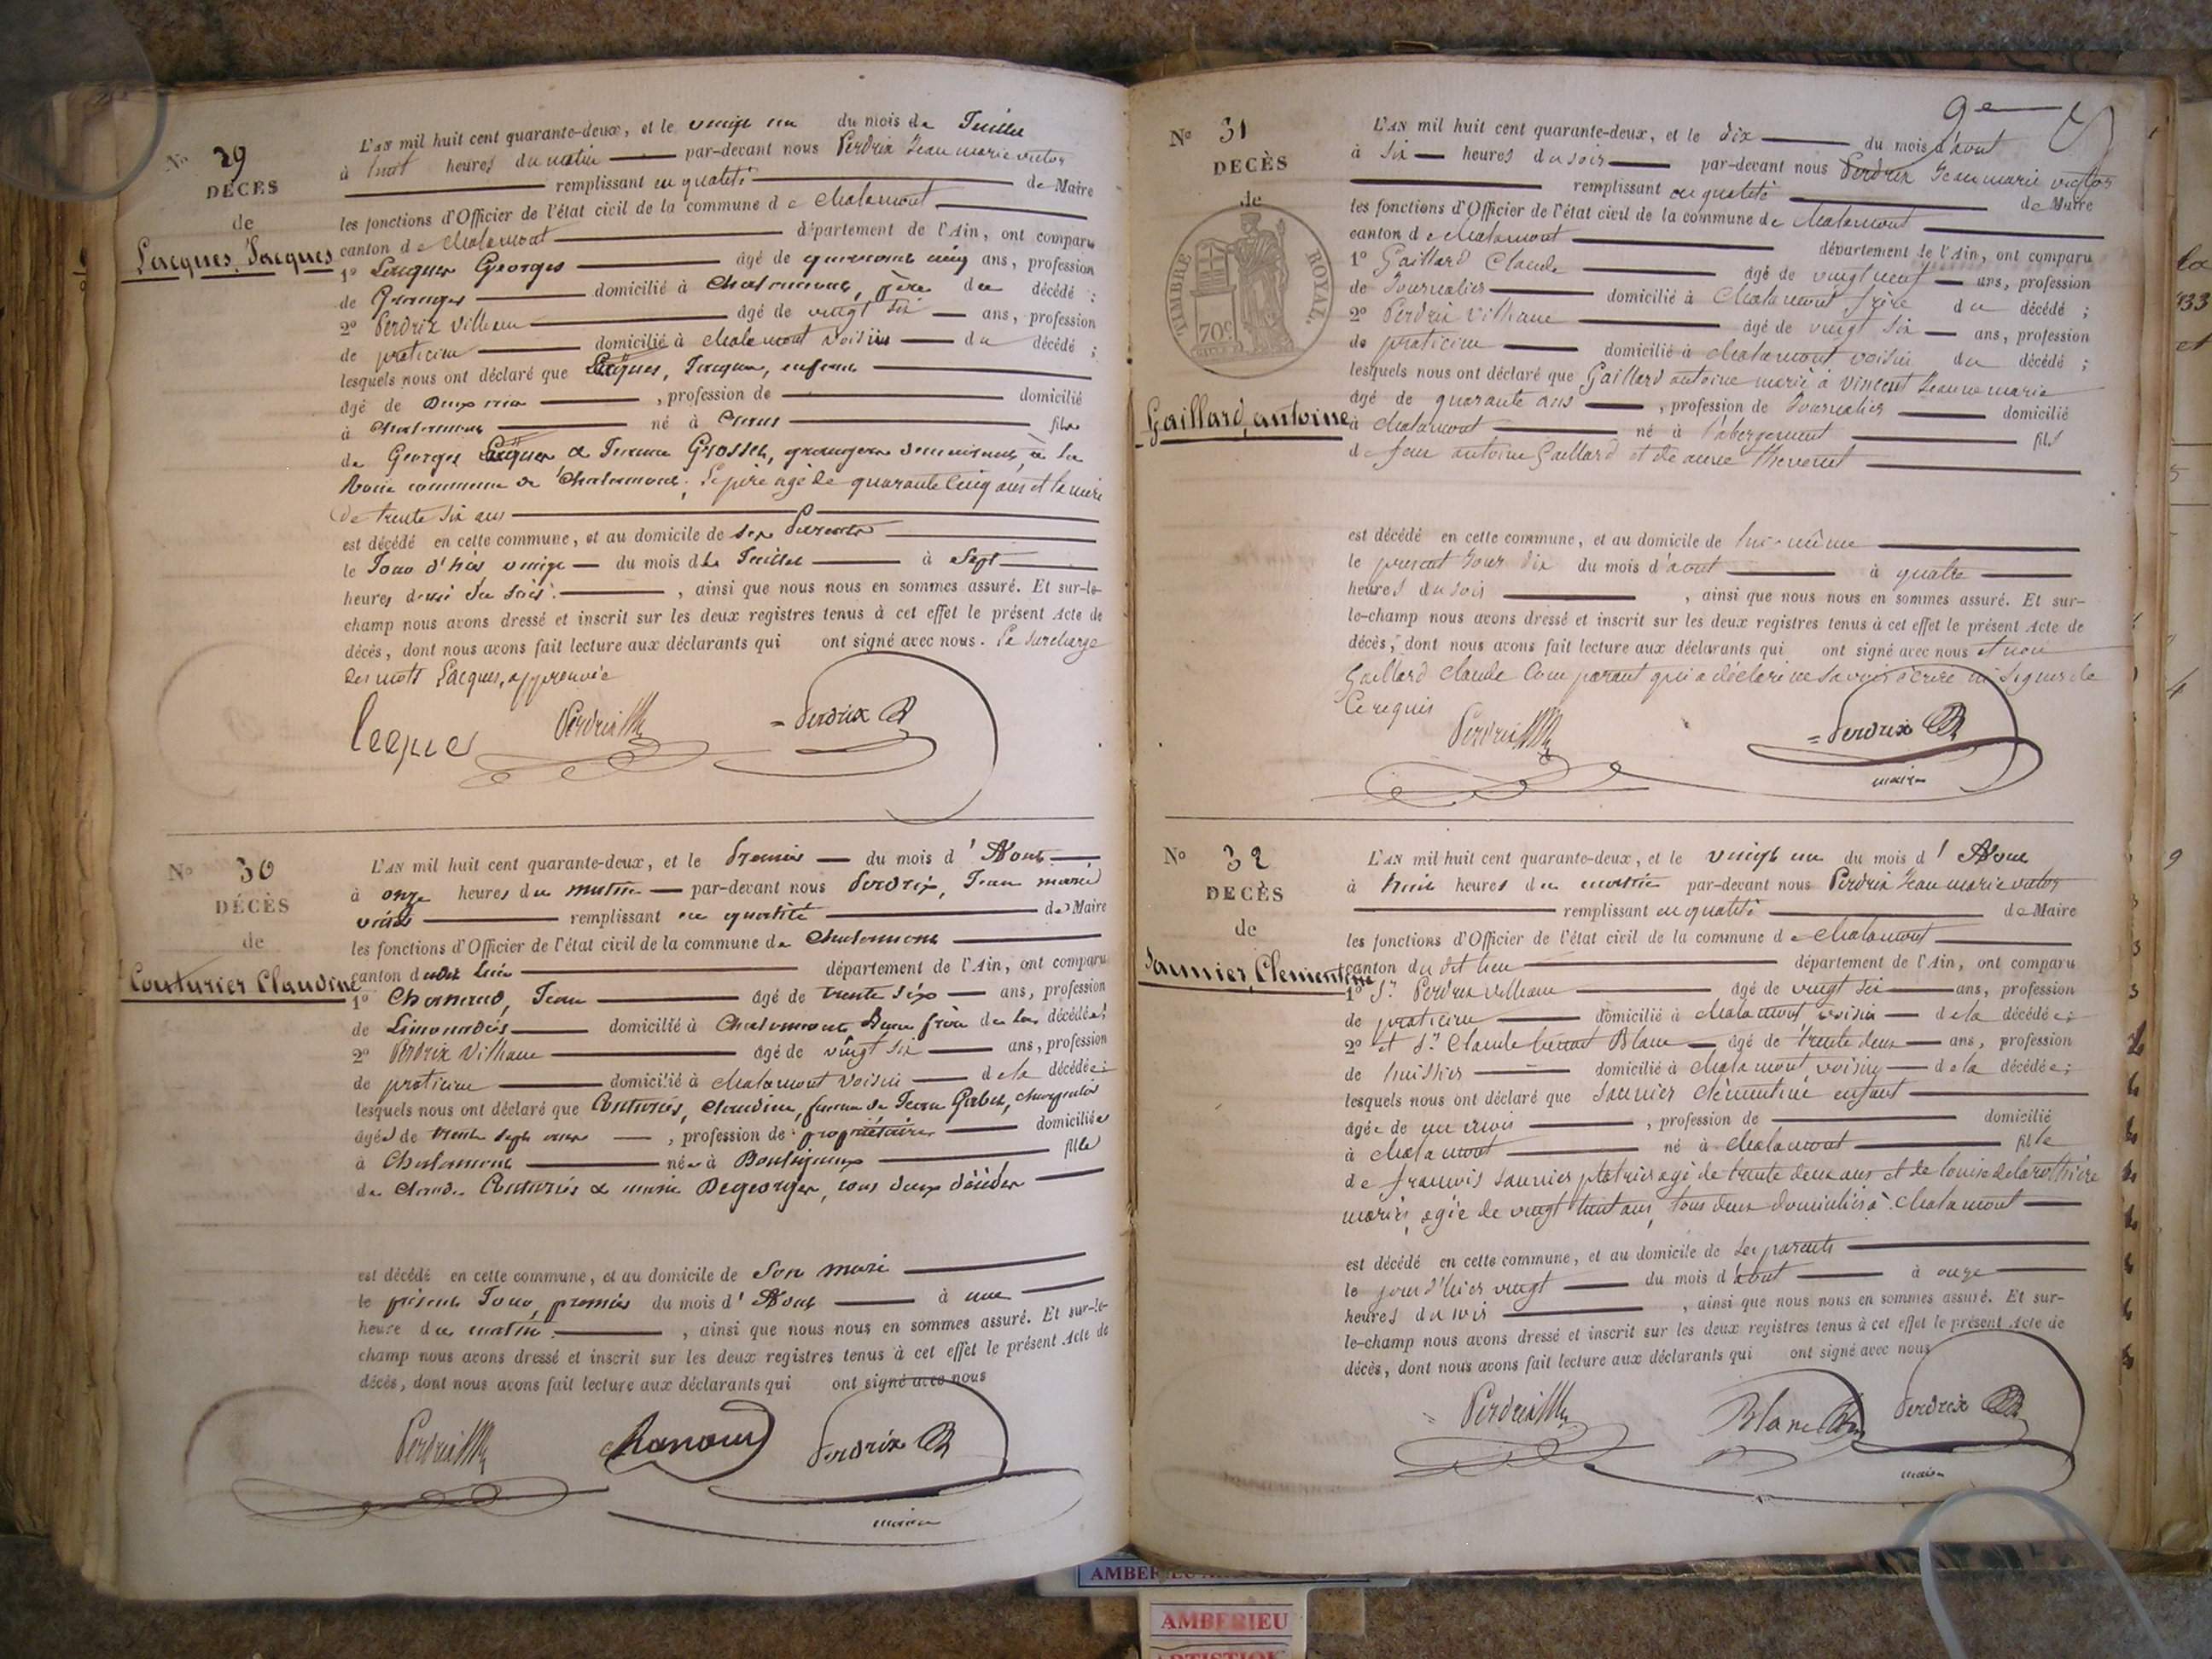 No 29
DÉCÈS
de
Lacques, Jacques
L'AN mil huit cent quarante-deux, et le vingt un du mois de Juillet
à huit heures du matin par-devant nous Perdrix Jean marie victor
remplissant en qualité de Maire
les fonctions d'Officier de l'état civil de la commune de chalamont
canton de chalamont département de l'Ain, ont comparu
1o Lacques Georges âgé de quarante cinq ans, profession
de Granger domicilié à Chalamont, père du décédé ;
2o Perdrix Villeaume âgé de vingt six ans, profession
de praticien domicilié à chalamont voisin du décédé ;
lesquels nous ont déclaré que Lacques, Jacques, enfant
âgé de Deux , profession de domicilié
à Chalamont né à fils
de Georges Lacques & Grosset, grangers demeurant à la
commune de Chalamont ; le père agé de quarante cinq ans et la mère
de trente six ans
est décédé en cette commune, et au domicile de ses Parents
le Jour d'hier vingt du mois de Juillet à Sept
heures demi du soir , ainsi que nous nous en sommes assuré. Et sur-le-
champ nous avons dressé et inscrit sur les deux registres tenus à cet effet le présent Acte de
décès, dont nous avons fait lecture aux déclarants qui ont signé avec nous. La surcharge
des mots Lacques, approuvée
Perdrix Perdrix
No 30
DÉCÈS
de
Couturier Claudine
L'AN mil huit cent quarante-deux, et le Premier du mois d'Aout
à onze heures du matin par-devant nous Perdrix, Jean marie
victor remplissant en qualité de Maire
les fonctions d'Officier de l'état civil de la commune de Chalamont
canton dudit lieu département de l'Ain, ont comparu
1o Chanaud, Jean âgé de trente six ans, profession
de Limonadier domicilié à Chalamont Beau frère de la décédée ;
2o Perdrix Villeaume âgé de vingt six ans, profession
de praticien domicilié à chalamont voisin de la décédée ;
lesquels nous ont déclaré que Couturier, Claudine, femme de Jean Gabet, charpentier
âgée de trente sept ans , profession de propriétaire domiciliée
à Chalamont née à Bouligneux fille
de Claude Couturier & marie Degeorges, tous deux décédés
est décédé en cette commune, et au domicile de Son mari
le présent Jour, premier du mois d'Aout à une
heure du matin , ainsi que nous nous en sommes assuré. Et sur-le-
champ nous avons dressé et inscrit sur les deux registres tenus à cet effet le présent Acte de
décès, dont nous avons fait lecture aux déclarants qui ont signé avec nous
Perdrix Chanaud Perdrix
maire
9e
No 31
DÉCÈS
de
TIMBRE ROYAL.
70c
Gaillard, antoine
L'AN mil huit cent quarante-deux, et le dix du mois d'aout
à six heures du soir par-devant nous Perdrix Jean marie victor
remplissant en qualité de Maire
les fonctions d'Officier de l'état civil de la commune de chalamont
canton de chalamont département de l'Ain, ont comparu
1o Gaillard Claude âgé de vingt neuf ans, profession
de Journalier domicilié à Chalamont frère du décédé ;
2o Perdrix Villeaume âgé de vingt six ans, profession
de praticien domicilié à chalamont voisin du décédé ;
lesquels nous ont déclaré que Gaillard antoine marié à vincent Jeanne marie
âgé de quarante ans , profession de Journalier domicilié
à chalamont né à l'abergement fils
de feu antoine Gaillard et de anne thevenet
est décédé en cette commune, et au domicile de lui-même
le present Jour dix du mois d'aout à quatre
heures du soir , ainsi que nous nous en sommes assuré. Et sur-
le-champ nous avons dressé et inscrit sur les deux registres tenus à cet effet le présent Acte de
décès, dont nous avons fait lecture aux déclarants qui ont signé avec nous et non
Gaillard claude Comparant qui a déclaré ne savoir écrire ni signer de
Ce requis
Perdrix Perdrix
maire
No 32
DÉCÈS
de
Saunier, Clementine
L'AN mil huit cent quarante-deux, et le vingt un du mois d'Aout
à huit heures du matin par-devant nous Perdrix Jean marie victor
remplissant en qualité de Maire
les fonctions d'Officier de l'état civil de la commune de chalamont
canton du dit lieu département de l'Ain, ont comparu
1o Sr. Perdrix Villeaume âgé de vingt six ans, profession
de praticien domicilié à chalamont voisin de la décédée ;
2o et Sr. Claude benoit Blanc âgé de trente deux ans, profession
de huissier domicilié à chalamont, voisin de la décédée ;
lesquels nous ont déclaré que Saunier clémentine enfant
âgée de un mois , profession de domicilié
à chalamont né à chalamont fille
de françois Saunier platrier agé de trente deux ans et de louise delarothière
mariés, agée de vingt huit ans, tous deux domiciliés à Chalamont
est décédé en cette commune, et au domicile de ses parents
le jour d'hier vingt du mois d'aout à onze
heures du soir , ainsi que nous nous en sommes assuré. Et sur-
le-champ nous avons dressé et inscrit sur les deux registres tenus à cet effet le présent Acte de
décès, dont nous avons fait lecture aux déclarants qui ont signé avec nous
Perdrix Blanc Perdrix
maire
AMBERIEU